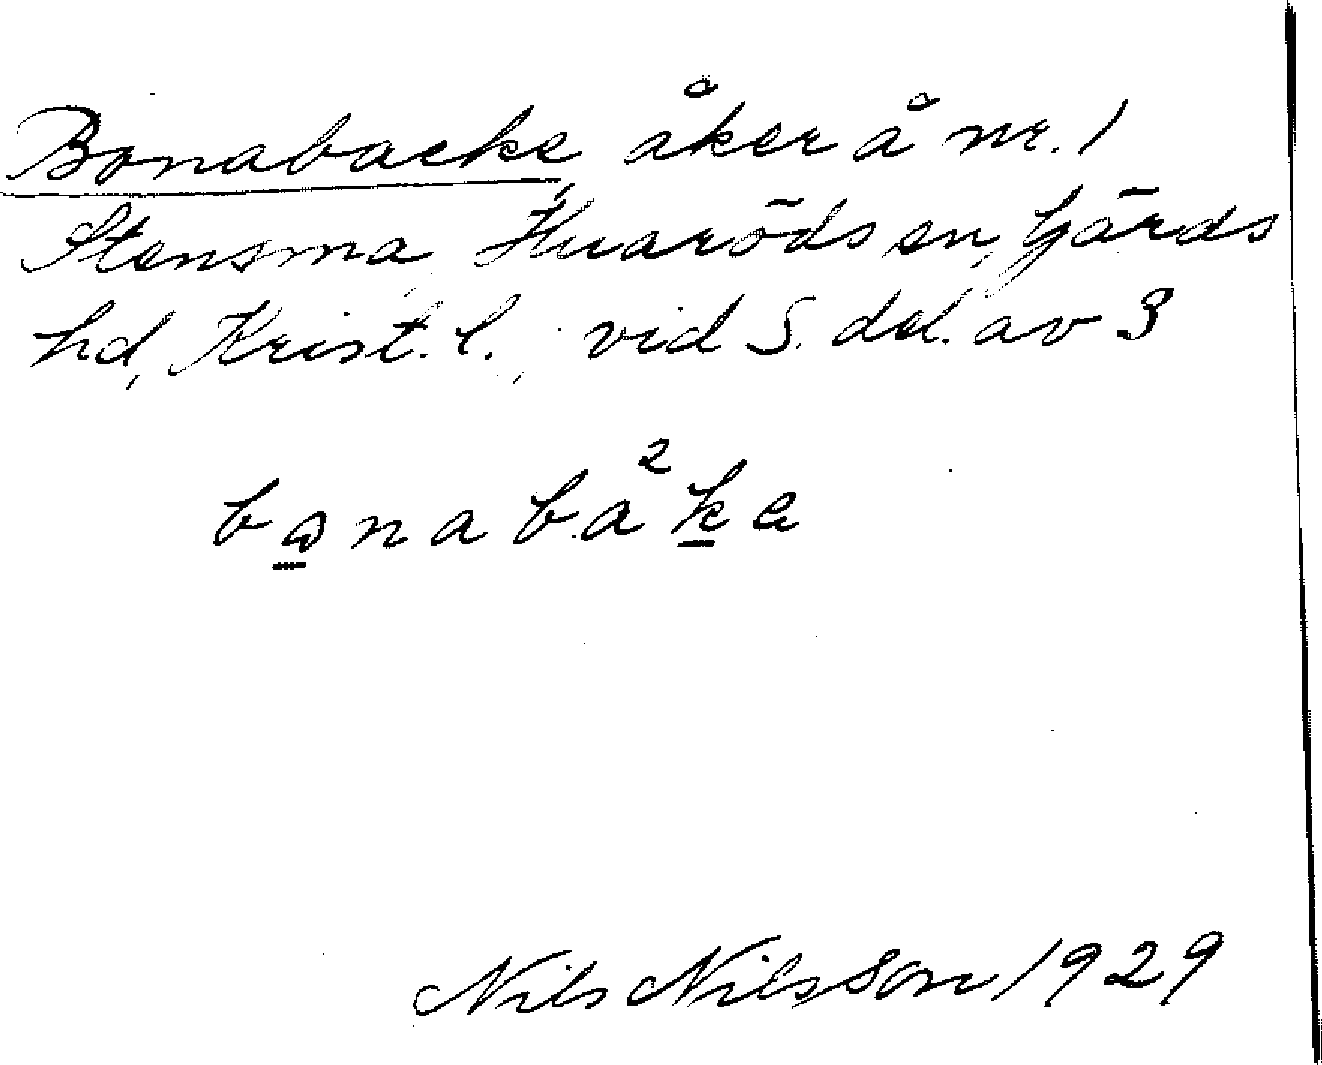 Bonabacke åker å nr. 1
Stensma, Huaröds sn, Gärds
hd, Krist. l., vid S. del. av 3
bɷnaba²ka
Nils Nilsson 1929